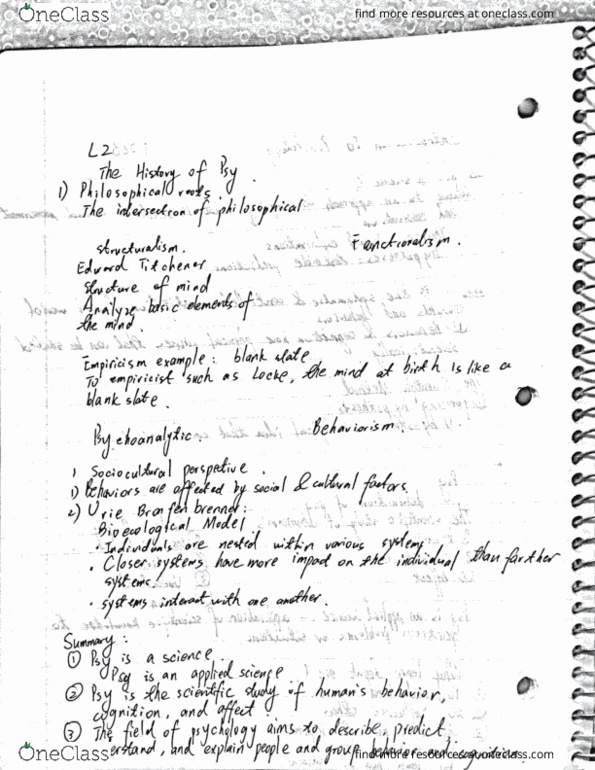 OneClass
find more resources at oneclass.com
L2
The History of Psy.
1) Philosophical roots.
The intersection of philosophical
structuralism. Functionalism.
Edward Titchener
structure of mind
Analyze basic elements of
the mind.
Empiricism example: blank slate
To empiricist such as Locke, the mind at birth is like a
blank slate.
Psychoanalytic. Behaviorism.
1 Sociocultural perspective.
1) Behaviors are affected by social & cultural factors
2) Urie Bronfenbrenner:
Bioecological Model
• Individuals are nested within various systems
• Closer systems have more impact on the individual than farther
systems.
• systems interact with one another.
Summary:
① Psy is a science.
Psy is an applied science
② Psy is the scientific study of human's behavior,
cognition, and affect
③ The field of psychology aims to describe, predict,
erstand, and explain people and group
OneClass
find more resources at oneclass.com